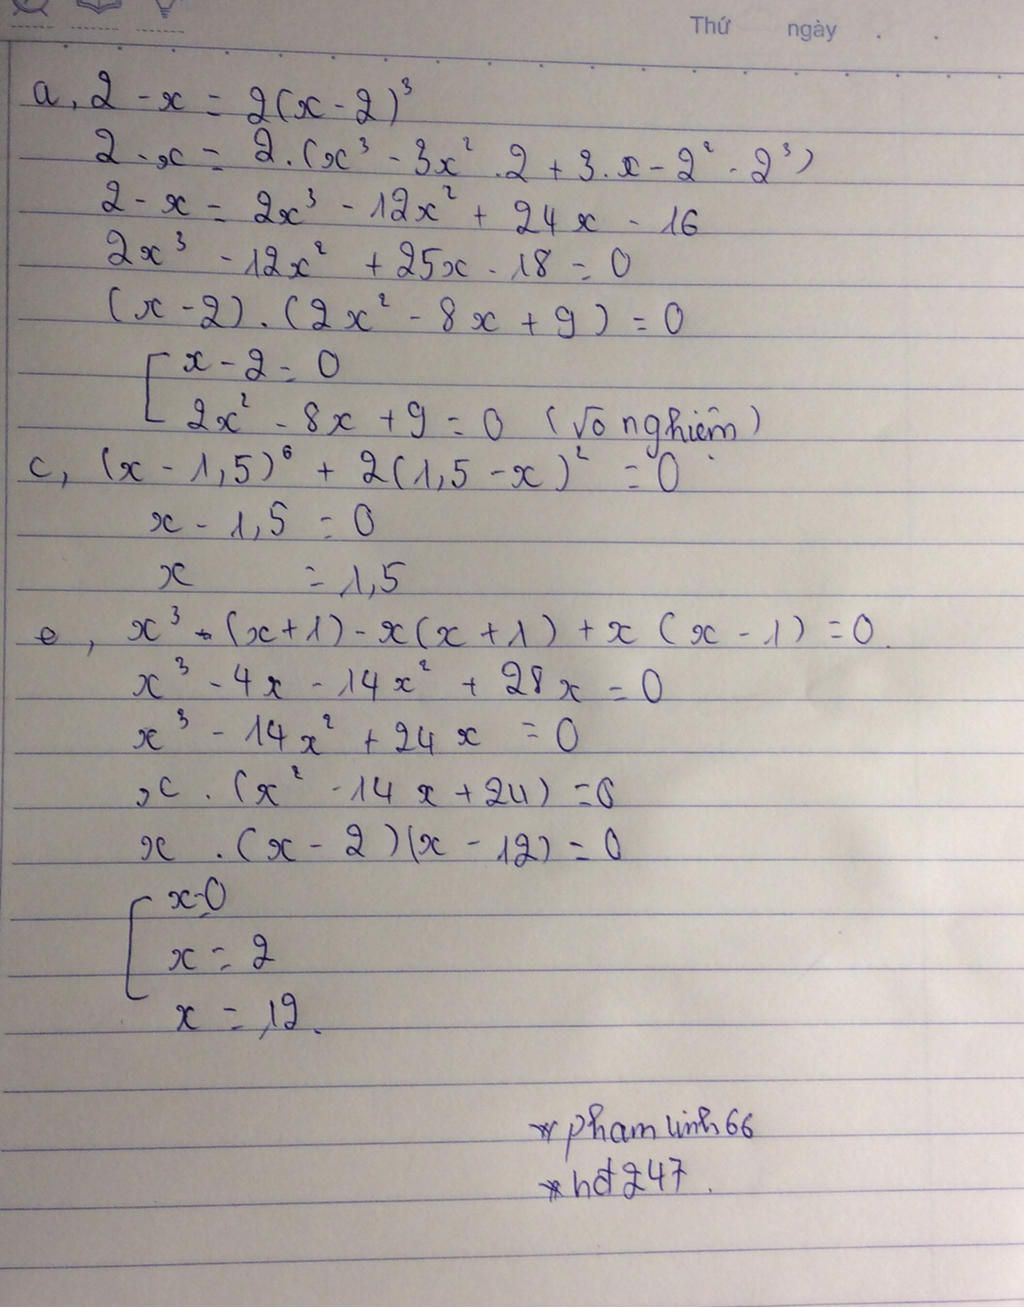 Thứ ngày . .
a, 2 - x = 2(x - 2)³
2 - x = 2.(x³ - 3x².2 + 3.x - 2² - 2³)
2 - x = 2x³ - 12x² + 24x - 16
2x³ - 12x² + 25x - 18 = 0
(x - 2).(2x² - 8x + 9) = 0
[ x - 2 = 0
2x² - 8x + 9 = 0 (vô nghiệm)
c, (x - 1,5)⁶ + 2(1,5 - x)² = 0
x - 1,5 = 0
x = 1,5
e, x³ - (x+1) - x(x+1) + x(x - 1) = 0.
x³ - 4x - 14x² + 28x = 0
x³ - 14x² + 24x = 0
x.(x² - 14x + 24) = 0
x.(x - 2)(x - 12) = 0
[ x=0
x = 2
x = 12.
*phamlinh66
*hđ247.